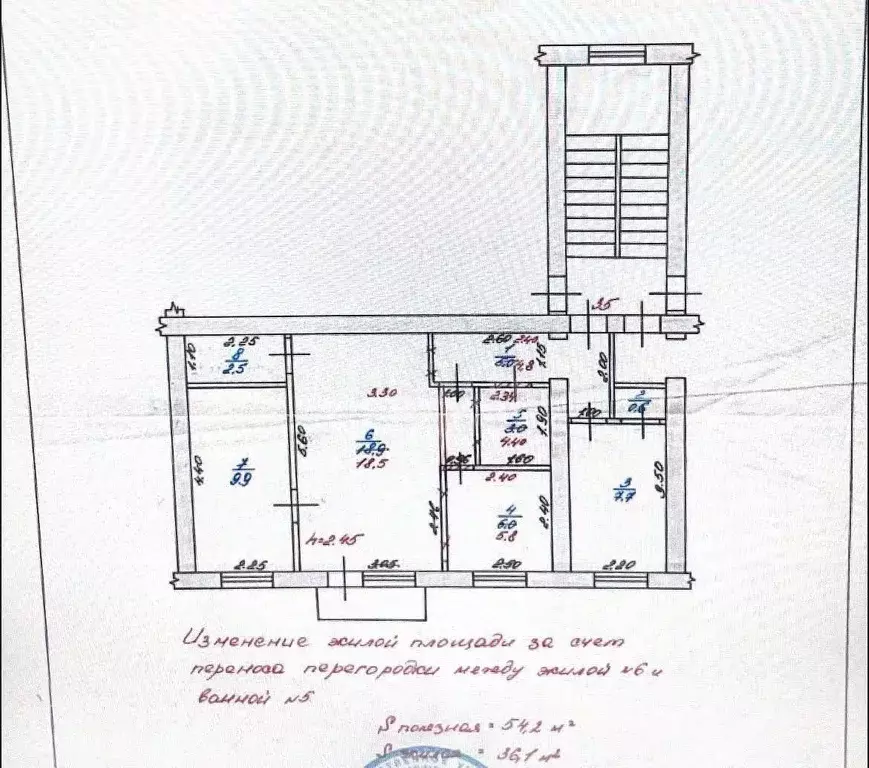 35
2.60 2.40
1
5.0 4.8
1.15
2.00
2.25
8
2.5
1.10
3.30
1.00
2.34
5
3.0
4.40
1.90
1.60
1.00
2
0.6
6
18.9
18.5
5.60
7
9.9
4.40
2.40
4
6.0
5.8
2.46
2.40
3
7.7
3.50
h=2.45
2.25
3.05
2.50
2.20
Изменение жилой площади за счет
переноса перегородки между жилой №6 и
ванной №5
S полезная = 54,2 м²
S жилая = 36,1 м²